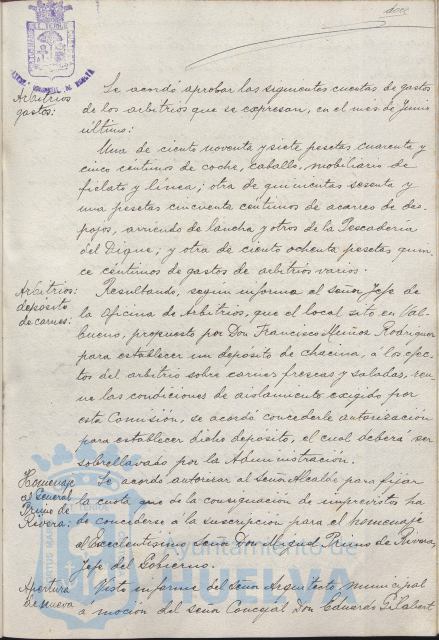 doce
Arbitrios
gastos:
Se acordó aprobar las siguientes cuentas de gastos
de los arbitrios que se expresan, en el mes de Junio
último:
Una de ciento noventa y siete pesetas cuarenta y
cinco céntimos de coche, caballo, mobiliario de
fielato y línea; otra de quinientas sesenta y
una pesetas cincuenta céntimos de acarreo de des-
pojos, arriendo de lancha y otros de la Pescadería
del Dique; y otra de ciento ochenta pesetas quin-
ce céntimos de gastos de arbitrios varios.
Arbitrios:
depósito
de carnes:
Resultando, según informa el señor Jefe de
la Oficina de Arbitrios, que el local sito en Val-
bueno, propuesto por Don Francisco Muñoz Rodríguez
para establecer un depósito de chacina, a los efec-
tos del arbitrio sobre carnes frescas y saladas, reu-
ne las condiciones de aislamiento exigido por
esta Comisión, se acordó concederle autorización
para establecer dicho depósito, el cual deberá ser
sobrellavado por la Administración.
Homenaje
al General
Primo de
Rivera:
Se acordó autorizar al señor Alcalde para fijar
la cuota que de la consignación de imprevistos ha
de concederse a la suscripción para el homenaje
al Excelentísimo Señor Don Miguel Primo de Rivera,
Jefe del Gobierno.
Apertura
de nueva
Visto informe del señor Arquitecto municipal
a moción del señor Concejal Don Eduardo Gilabert
Ayuntamiento de
HUELVA